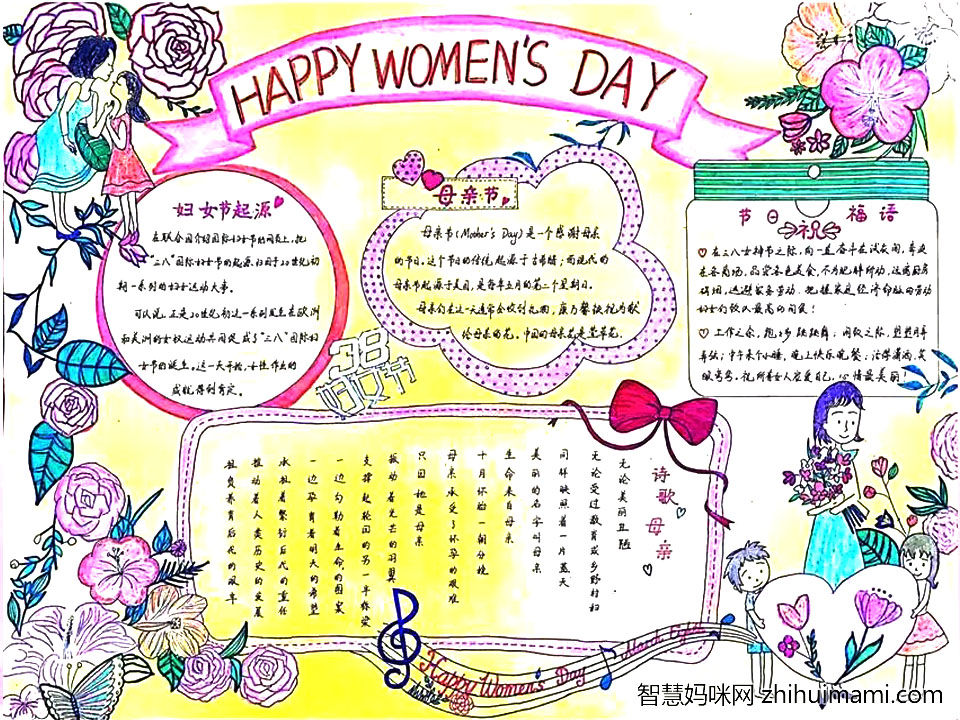 HAPPY WOMEN'S DAY
妇女节起源
在联合国介绍国际妇女节的网页上,把
"三八"国际妇女节的起源归因于20世纪初
期一系列的妇女运动大事。
可以说,正是20世纪初这一系列发生在欧洲
和美洲的女权运动共同促成了"三八"国际妇
女节的诞生。这一天开始,女性作出的
成就得到肯定。
母亲节
母亲节(Mother's Day)是一个感谢母亲
的节日。这个节日的传统起源于古希腊;而现代的
母亲节起源于美国,是每年五月的第二个星期日。
母亲们在这一天通常会收到礼物,康乃馨被视为献
给母亲的花。中国的母亲花是萱草花。
节日祝福语
在三八女神节之际,向一直奋斗在试衣间,奔走
在各商场,品尝各色美食,不为肥胖所动,
远避家务劳动,把握家庭经济命脉的劳动
妇女们致以最高的问候!
上作之余,跑跑步跳跳舞;闲暇之际,
中午来个小睡,晚上快乐晚餐;活得潇洒,笑
祝所有女人宠爱自己,心情最美丽!
38
妇女节
诗歌 母亲
无论美丽丑陋
无论受过教育或乡野村妇
同样映照着一片蓝天
美丽的名字叫母亲
生命来自母亲
十月怀胎一朝分娩
母亲承受了怀孕的艰难
只因她是母亲
振动着光芒的羽翼
支撑起轮回的另一半
一边勾勒着生命的图案
一边孕育着明天的希望
承担着繁衍后代的重任
推动着人类历史的发展
担负养育后代的艰辛
Happy Women's Day
March Eighth
智慧妈咪网 zhihuimami.com